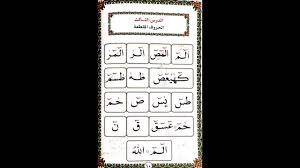 الدرس الثالث
الحروف المقطعة
الٓمٓ الٓمٓصٓ الٓرٰ الٓمٓرٰ
كٓهٰيٰعٓصٓ طٰهٰ طٰسٓمٓ
طٰسٓ يٰسٓ صٓ حٰمٓ
حٰمٓ عٓسٓقٓ قٓ نٓ
الٓمٓ اللّٰهُ